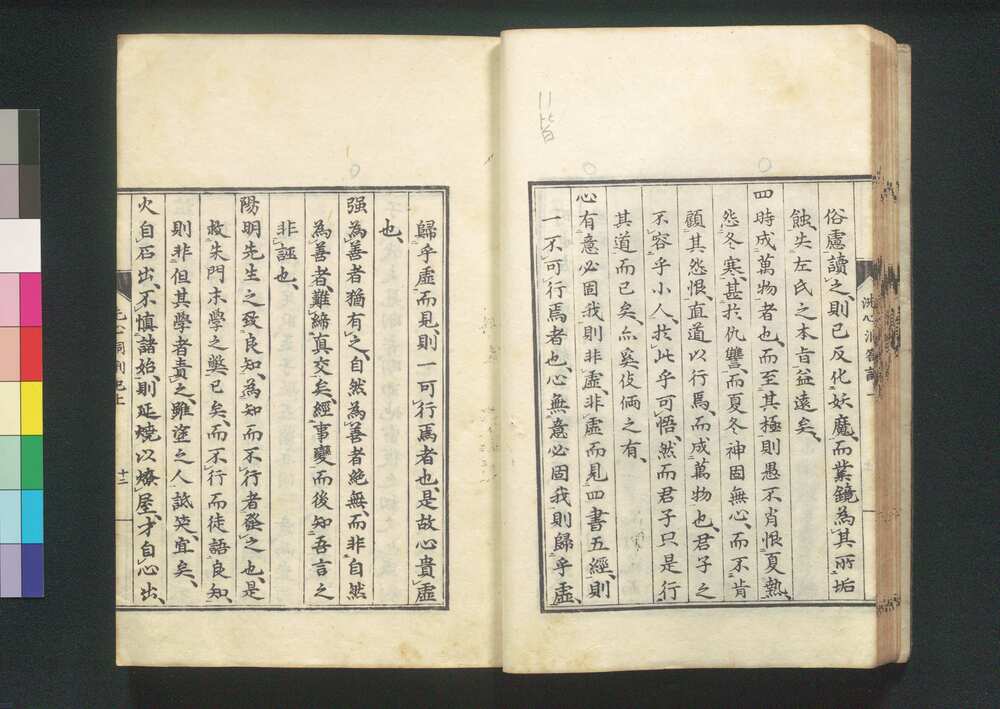 俗慮讀之則已反化妖魔而業鏡為其所垢
蝕失左氏之本旨益遠矣
四時成萬物者也而至其極則愚不肖恨夏熱
怨冬寒甚於仇讐而夏冬神固無心而不肯
顧其怨恨直道以行焉而成萬物也君子之
不容乎小人於此乎可悟然而君子只是行
其道而已矣亦奚伎倆之有
心有意必固我則非虛非虛而見四書五經則
一不可行焉者也心無意必固我則歸乎虛
歸乎虛而見則一可行焉者也是故心貴虛
也
强為善者猶有之自然為善者絶無而非自然
為善者難締真交矣經事變而後知吾言之
非誣也
陽明先生之致良知為知而不行者發之也是
救朱門末學之弊已矣而不行而徒語良知
則非但其學者責之雖盗之人詆笑宜矣
火自石出不慎諸始則延燒以燎屋才自心出
洗心洞劄記上
十二
皆